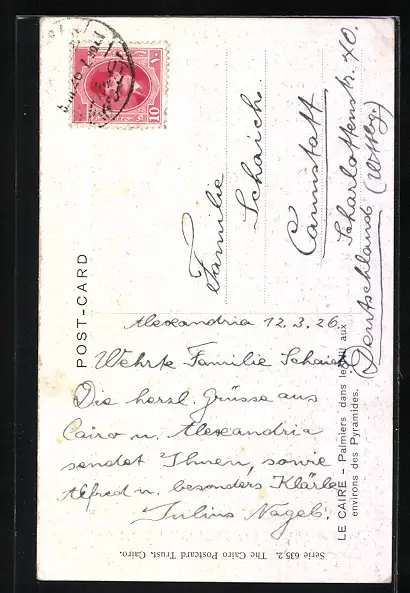 POST-CARD
Alexandria 12.3.26.
Wehrte Familie Schaich
Die herzl. Grüsse aus
Cairo u. Alexandria
sendet Ihnen, sowie
Alfred u. besonders Klärle
Julius Nagel.
Familie
Schaich.
Cannstatt
Scharlottenstr. 40.
(Deutschland (Wttbg.)
LE CAIRE – Palmiers dans aux
environs des Pyramides.
Serie 635.2. The Cairo Postcard Trust. Cairo.
10
١٠